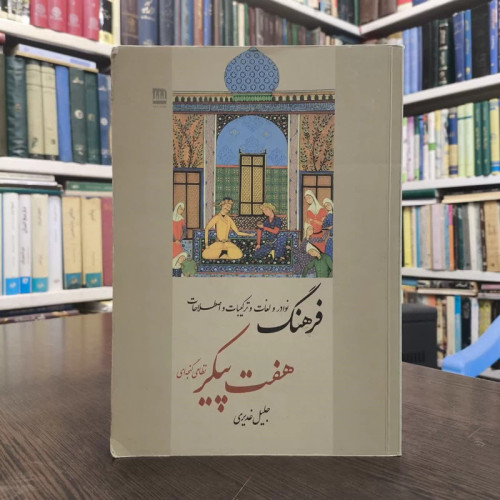 فرهنگ
نوادر و لغات و ترکیبات و اصطلاحات
هفت پیکر
نظامی گنجه‌ای
جلیل غدیری